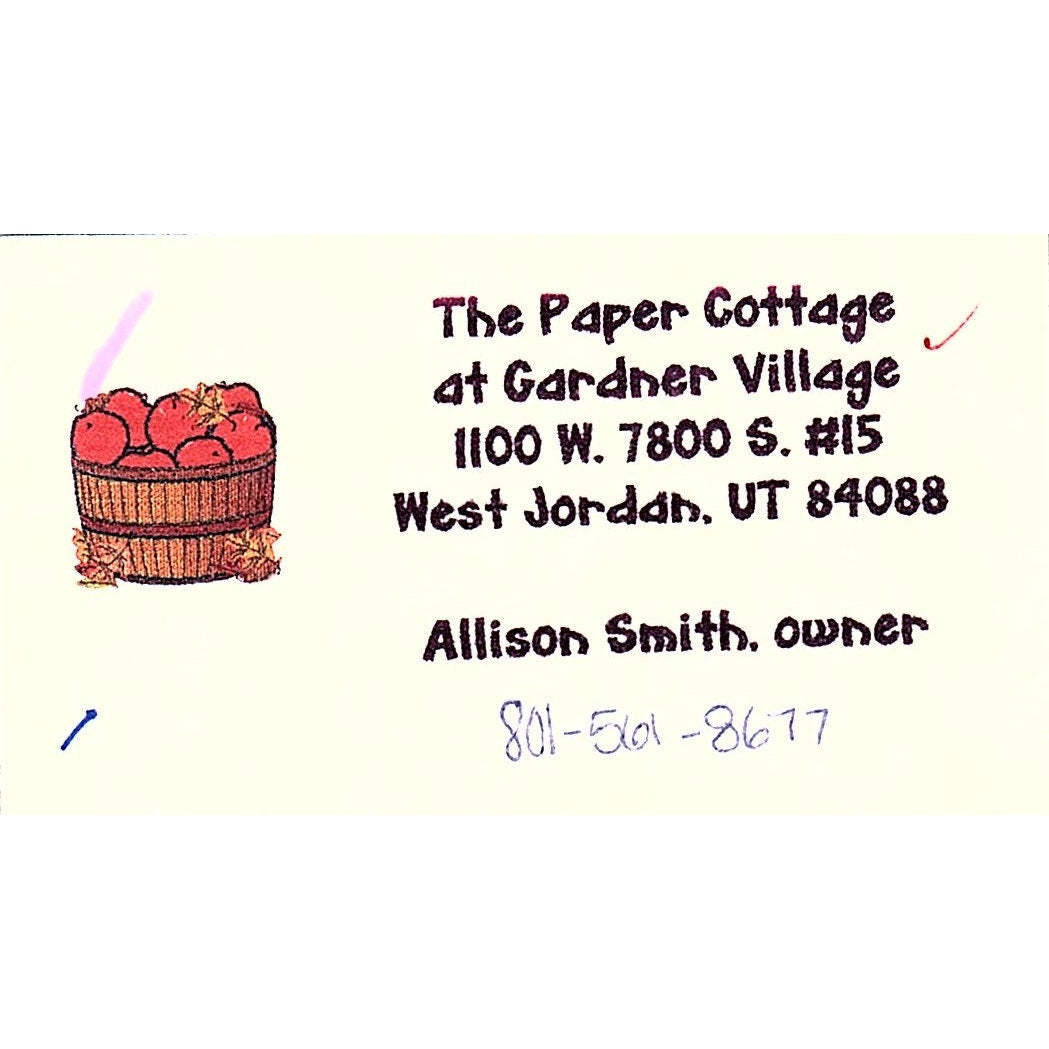 The Paper Cottage
at Gardner Village
1100 W. 7800 S. #15
West Jordan, UT 84088
Allison Smith, owner
801-561-8677